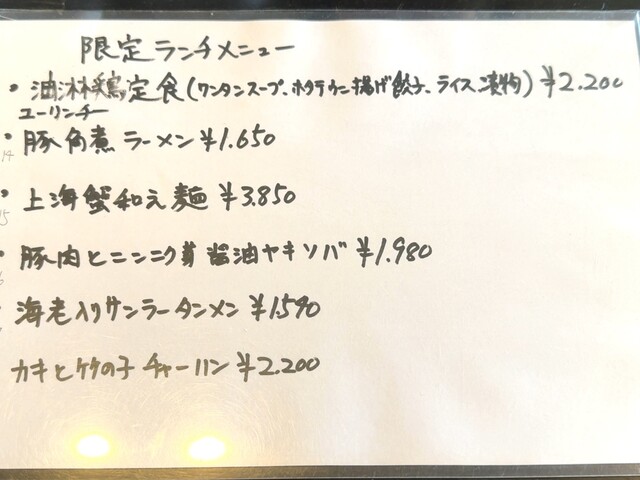 限定ランチメニュー
・油淋鶏定食(ワンタンスープ、ホタテウニ揚げ餃子、ライス、漬物)¥2.200
ユーリンチー
・豚角煮ラーメン¥1.650
14
・上海蟹和え麺¥3.850
15
・豚肉とニンニク茸醤油ヤキソバ¥1.980
海老入りサンラータンメン¥1.590
カキと竹の子チャーハン¥2.200